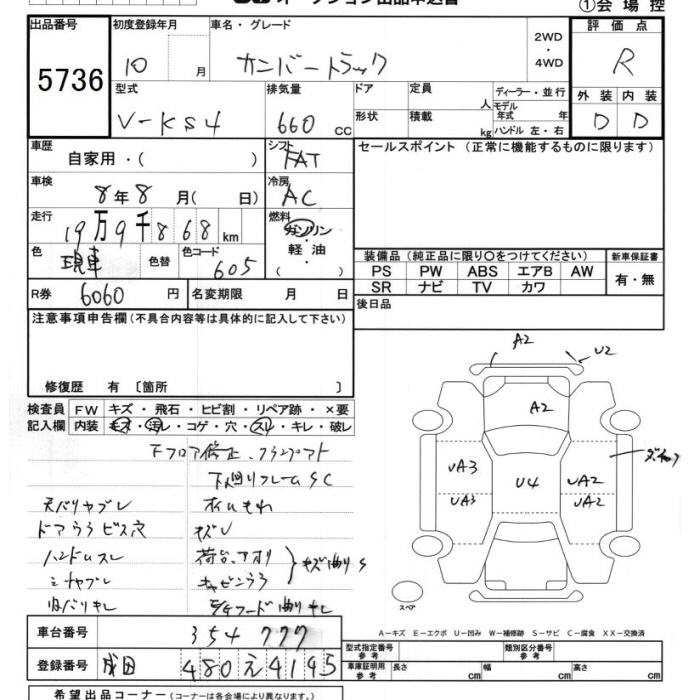 オークション出品申込書
①会場控
出品番号 初度登録年月 車名・グレード 2WD・4WD 評価点
5736 10 月 サンバートラック R
型式 排気量 ドア 定員 人 ディーラー・並行 外装 内装
V-KS4 660 cc 形状 積載 kg モデル年式 年 ハンドル 左・右 D D
車歴 自家用・( ) シフト FAT セールスポイント (正常に機能するものに限ります)
車検 8年8月( 日) 冷房 AC
走行 19万9千868km 燃料 ガソリン・軽油 ( )
色 現車 色替 色コード 605
装備品 (純正品に限り○をつけてください) 新車保証書
PS PW ABS エアB AW 有・無
SR ナビ TV カワ
R券 6060 円 名変期限 月 日 後日品
注意事項申告欄 (不具合内容等は具体的に記入して下さい)
修復歴 有 〔箇所 〕
検査員記入欄 FW キズ・飛石・ヒビ割・リペア跡・×要
内装 キズ・汚れ・コゲ・穴・スレ・キレ・破レ
下フロア修正
下回りフレームSC
天バリヤブレ
ドアウラビス穴 キズU
ハンドルスレ 荷台、アオリ キズ曲りS
シートヤブレ キャビンウラ
内バリキレ 曲りキレ
A2 U2
A2
UA3 U4 UA2
UA3 UA2
スペア
A-キズ E-エクボ U-凹み W-補修跡 S-サビ C-腐食 XX-交換済
車台番号 354777
型式指定番号 参考 類別区分番号 参考
登録番号 成田 480 え 4195
車庫証明用 参考 長さ cm 幅 cm 高さ cm
希望出品コーナー (コーナーは各会場により異なります。)